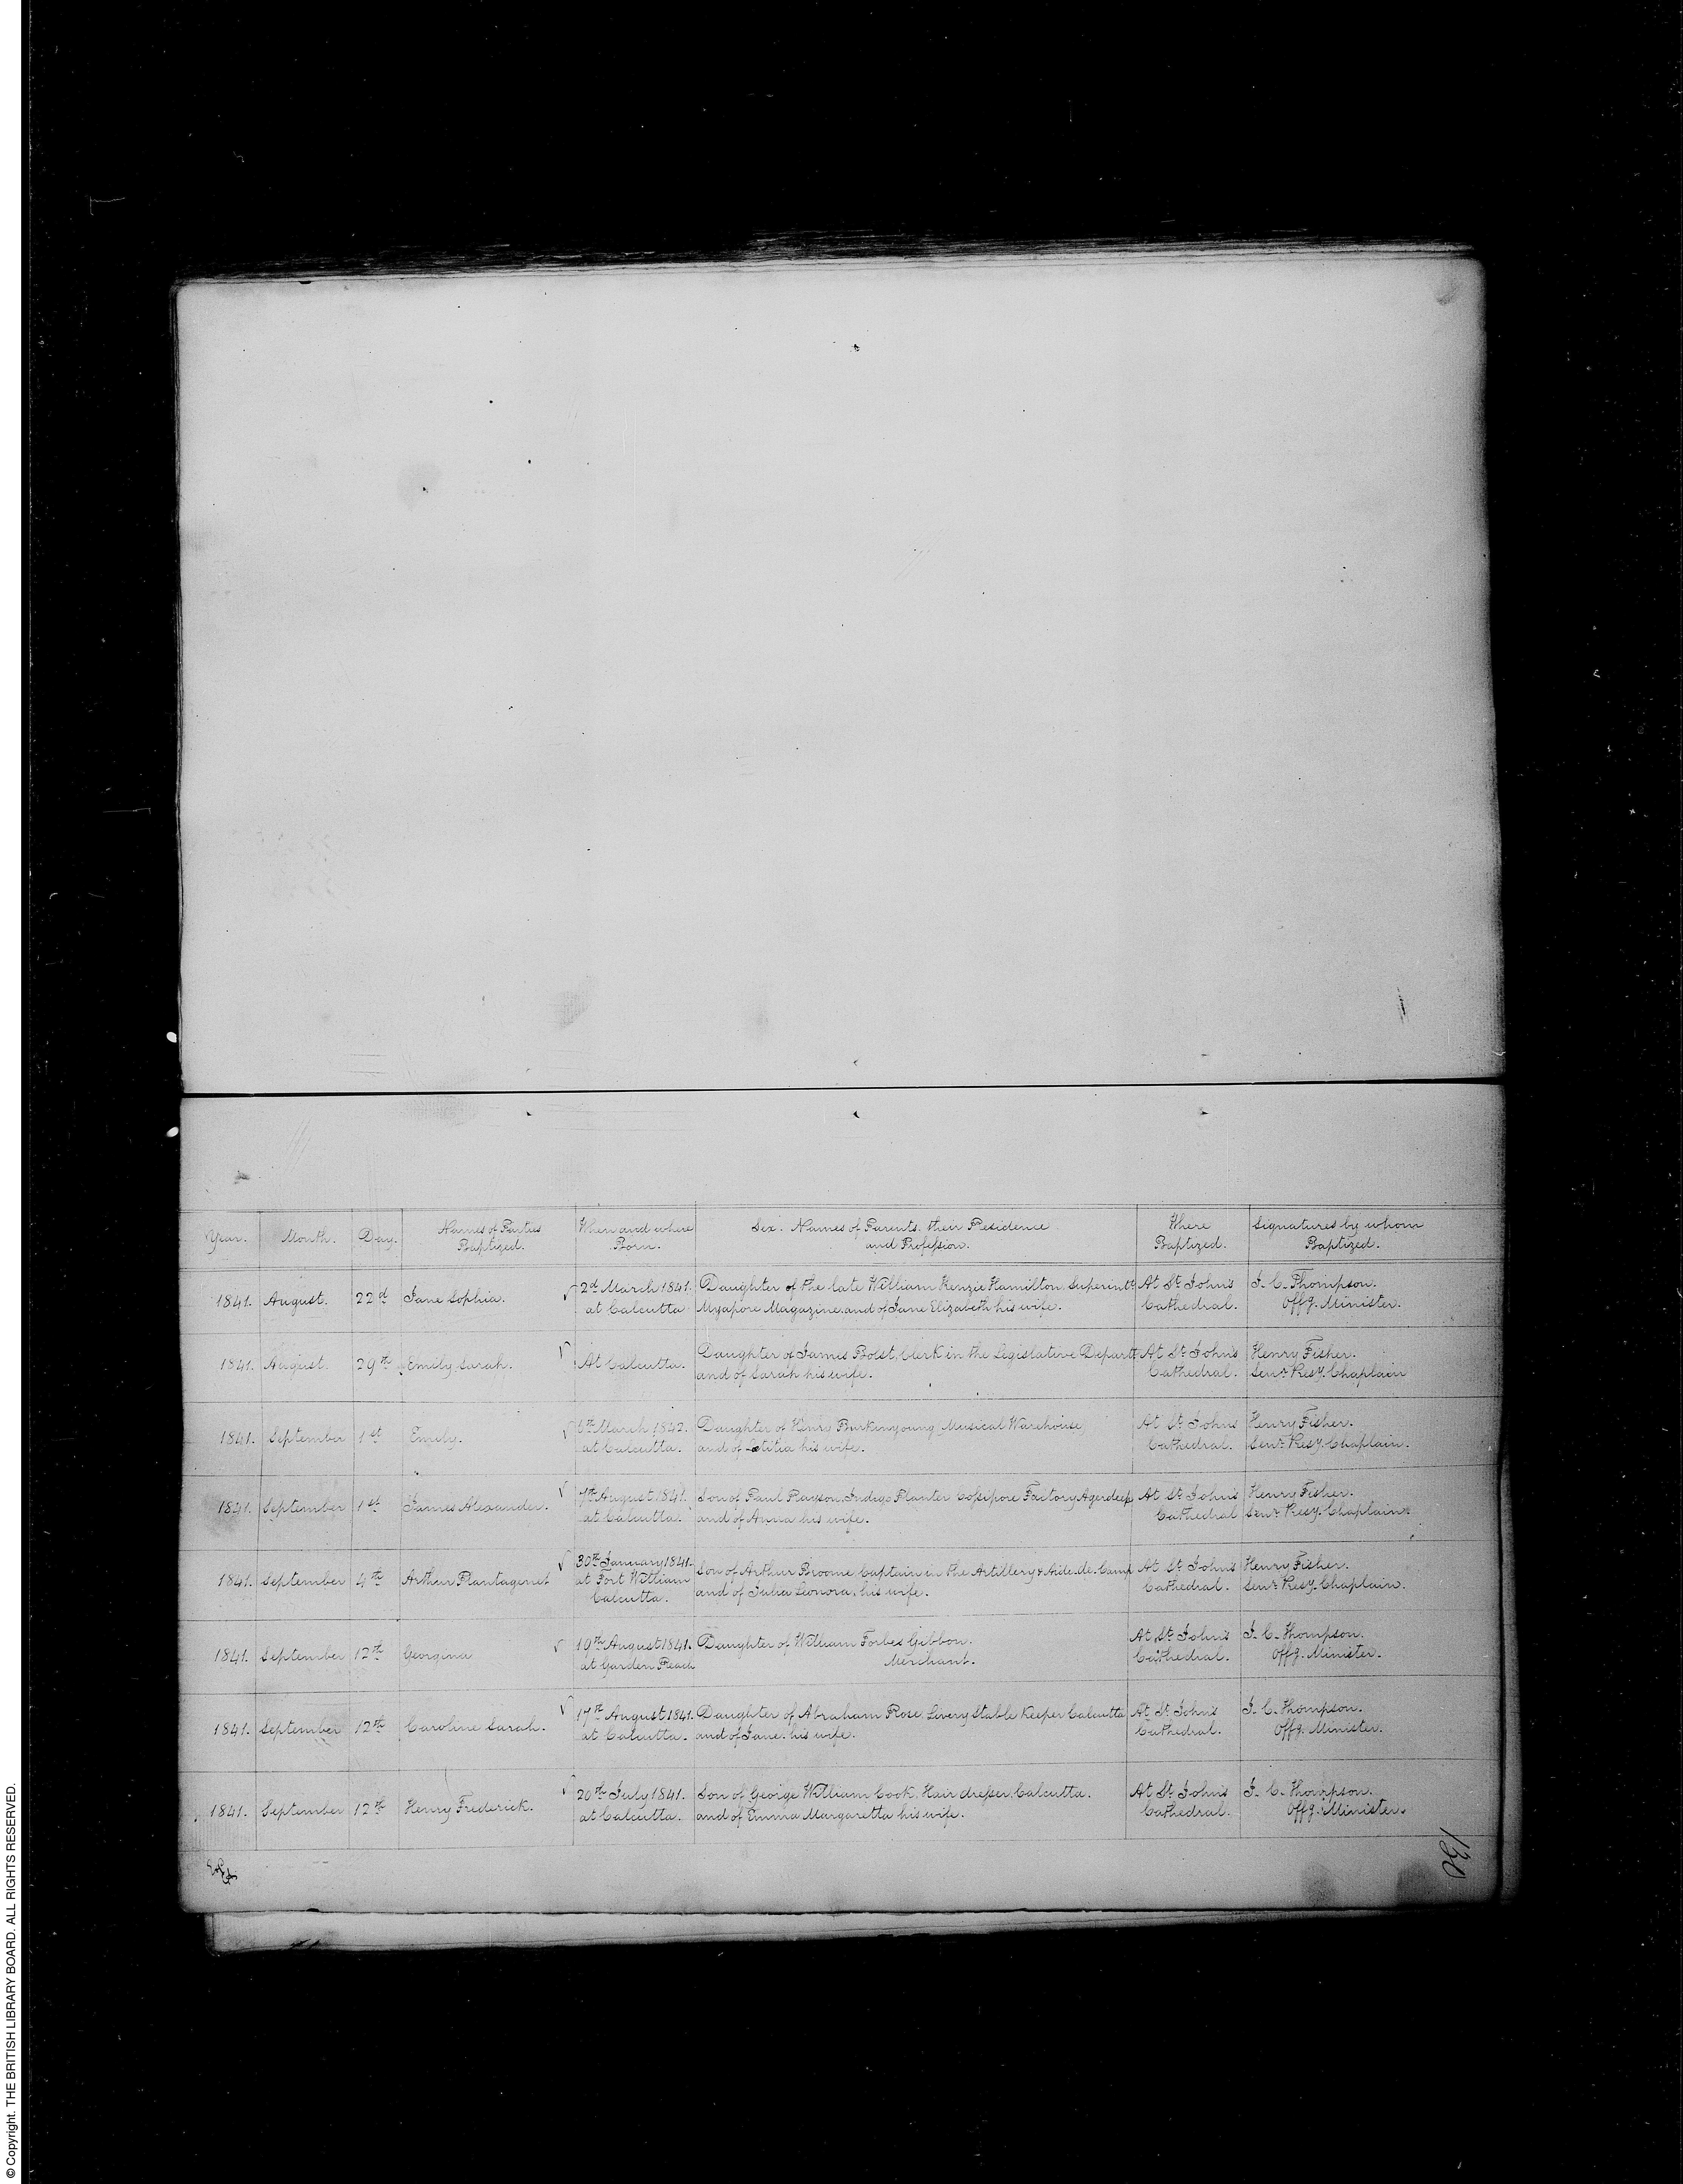 Year. Month. Day. Names of Parties Baptized. When and where Born. Sex. Names of Parents, their Residence and Profession. Where Baptized. Signatures by whom Baptized.
1841. August. 22d Jane Sophia. 2d March 1841. Daughter of the late William Kenzie Hamilton Superintt. At St. John's J. C. Thompson.
at Calcutta Myapore Magazine, and of Jane Elizabeth his wife. Cathedral. Offg. Minister.
1841. August. 29th Emily Sarah. At Calcutta. Daughter of James Bolst, Clerk in the Legislative Departt. At St. John's Henry Fisher.
and of Sarah his wife. Cathedral. Senr. Resy. Chaplain
1841. September 1st Emily. 6th March 1842. Daughter of Henry Burkinyoung Musical Warehouse, At St. Johns Henry Fisher.
at Calcutta. and of Letitia his wife. Cathedral. Senr. Resy. Chaplain.
1841. September 1st James Alexander. August 1841. Son of Paul Rayson, Indigo Planter Cossipore Factory At St. John's Henry Fisher.
at Calcutta. and of Anna his wife. Cathedral Senr. Resy. Chaplain.
1841. September 4th Arthur Plantagenet 30th January 1841. Son of Arthur Broome Captain in the Artillery & Aide-de-Camp At St. Johns Henry Fisher.
at Fort William and of Julia Leonora, his wife. Cathedral. Senr. Resy. Chaplain.
Calcutta.
1841. September 12th Georgina 19th August 1841. Daughter of William Forbes Gibbon. At St. John's J. C. Thompson.
at Garden Reach Merchant. Cathedral. Offg. Minister.
1841. September 12th Caroline Sarah. 17th August 1841. Daughter of Abraham Rose Livery Stable Keeper Calcutta At St. John's J. C. Thompson.
at Calcutta. and of Jane, his wife. Cathedral. Offg. Minister.
1841. September 12th Henry Frederick. 20th July 1841. Son of George William Cook, Hair dresser, Calcutta. At St. John's J. C. Thompson.
at Calcutta. and of Emma Margaretta his wife. Cathedral. Offg. Minister.
130
© Copyright. THE BRITISH LIBRARY BOARD. ALL RIGHTS RESERVED.